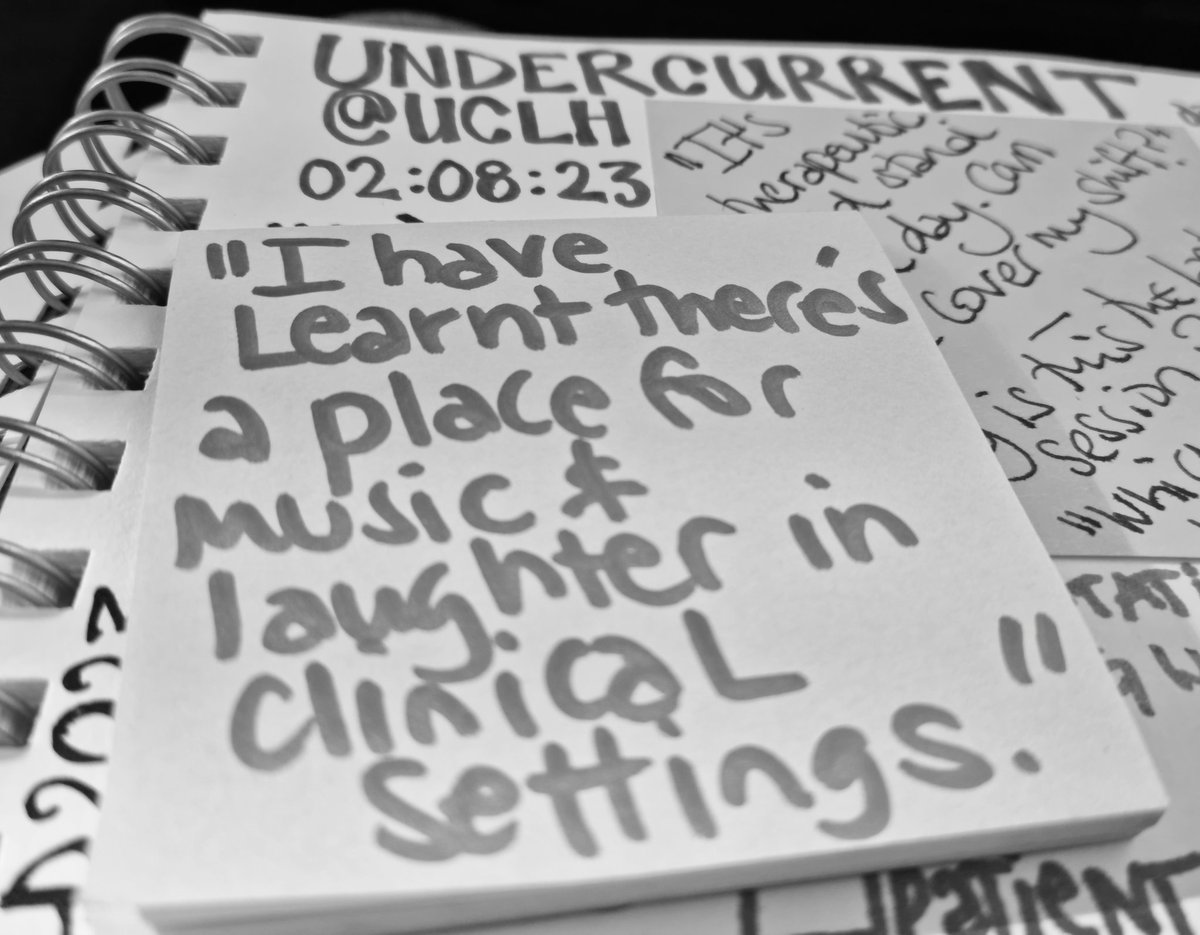 UNDERCURRENT
@UCLH
02:08:23
"It's
therapeutic
stand
day. Can
cover my shift?"
is this the
session
"I have
Learnt there's
a place for
music &
laughter in
clinical
settings."
patient